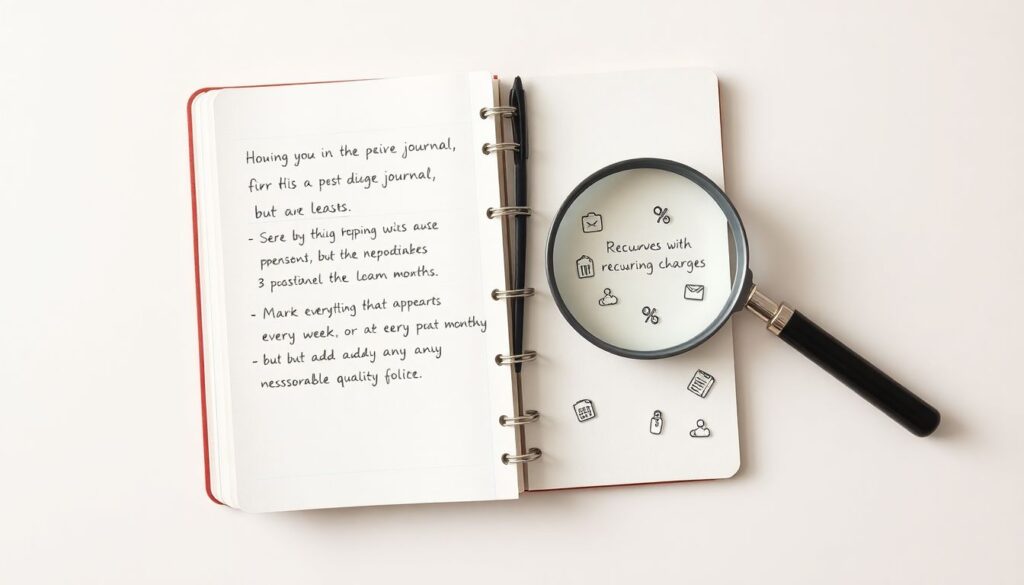 Houing you in the peive journal,
firr this a pest diuge journal,
but are leasts.
- Sere by thiig rqpping wits ause
ppensent, but the nepodiakes
3 pcostinel the Loam months.
- Mark everytling that appearts
every week, or at eery peat monthy
- but but add audy any any
nesssorable quality folice.
Recurves with
recuring charges